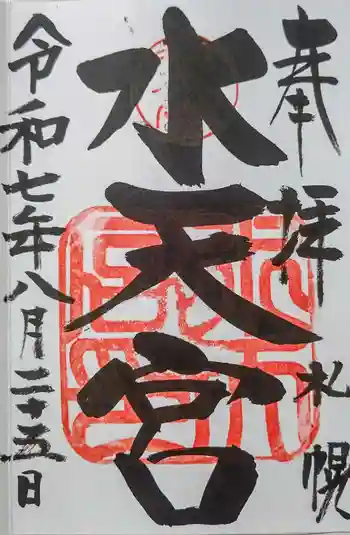 奉拝
札幌
水天宮
令和七年八月二十五日